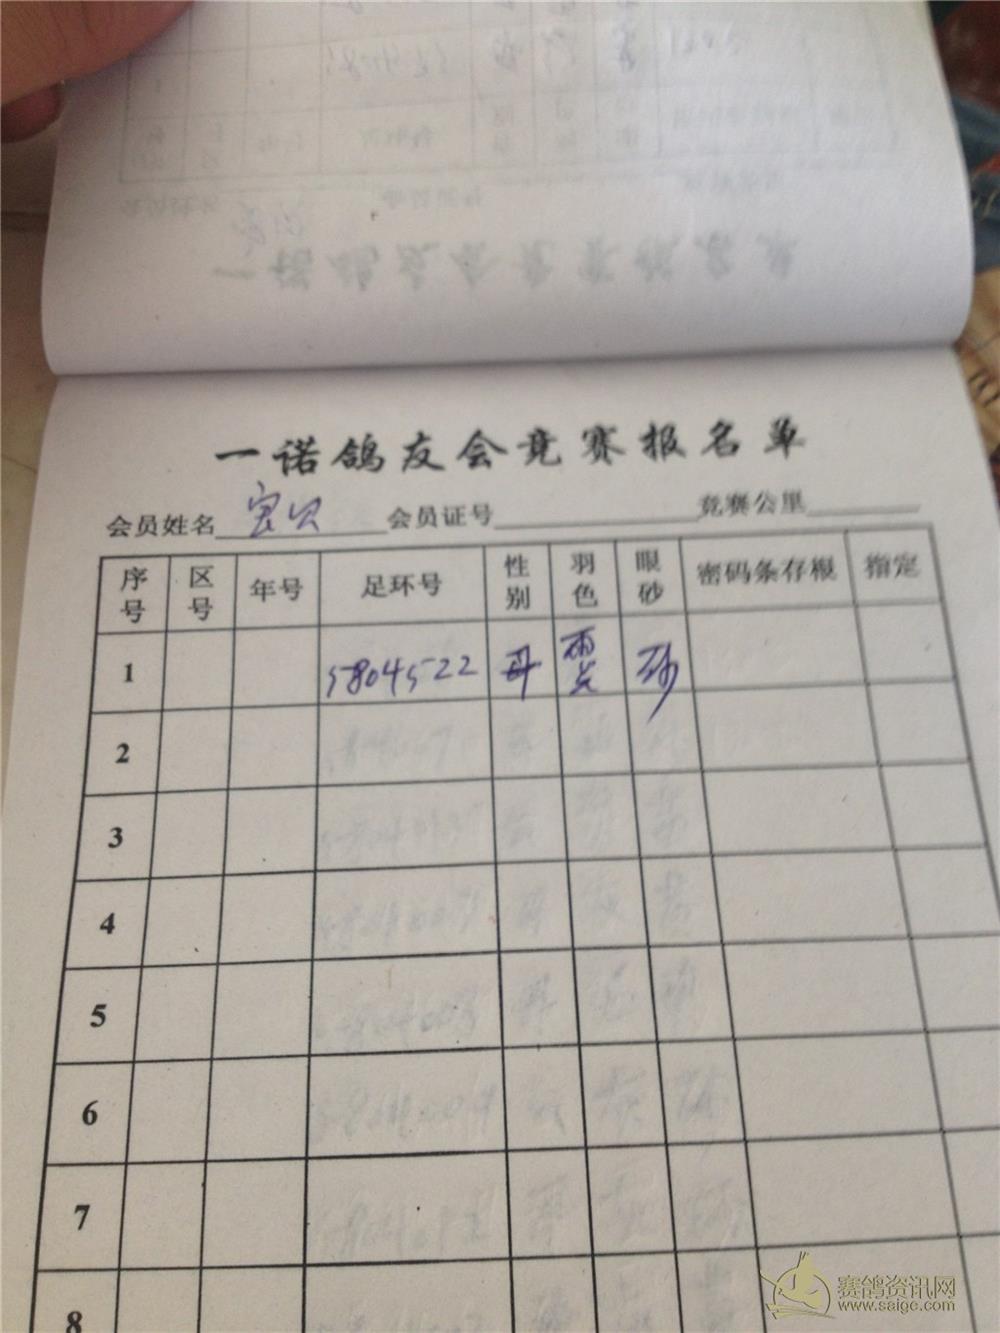 一诺鸽友会竞赛报名单
会员姓名 宝贝 会员证号 竞赛公里
序号 区号 年号 足环号 性别 羽色 眼砂 密码条存根 指定
1 5804522 砂
2
3
4
5
6
7
8
赛鸽资讯网
www.saige.com